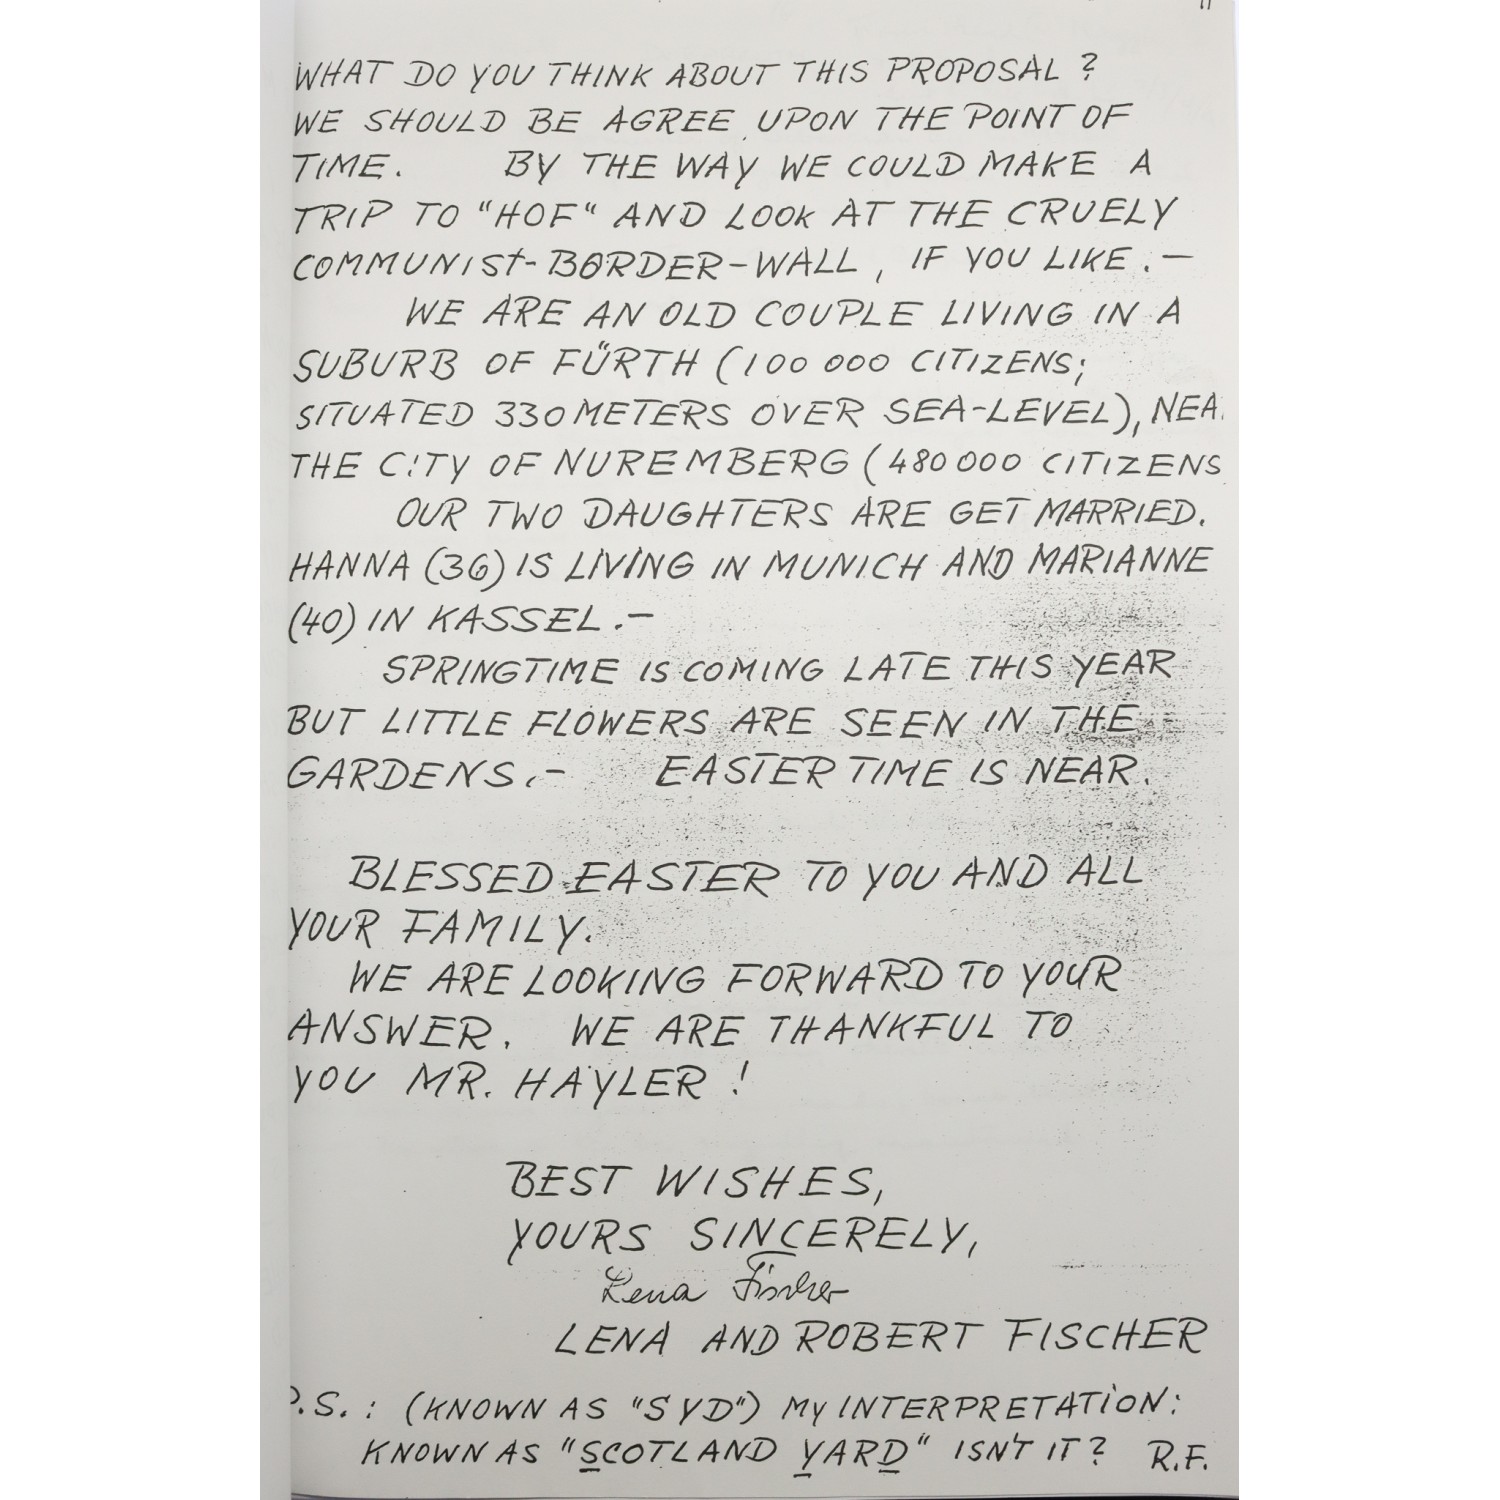 WHAT DO YOU THINK ABOUT THIS PROPOSAL ?
WE SHOULD BE AGREE UPON THE POINT OF
TIME. BY THE WAY WE COULD MAKE A
TRIP TO "HOF" AND LOOK AT THE CRUELY
COMMUNIST-BORDER-WALL, IF YOU LIKE.-
WE ARE AN OLD COUPLE LIVING IN A
SUBURB OF FÜRTH (100 000 CITIZENS;
SITUATED 330 METERS OVER SEA-LEVEL), NEA
THE CITY OF NUREMBERG (480 000 CITIZENS
OUR TWO DAUGHTERS ARE GET MARRIED.
HANNA (36) IS LIVING IN MUNICH AND MARIANNE
(40) IN KASSEL.-
SPRINGTIME IS COMING LATE THIS YEAR
BUT LITTLE FLOWERS ARE SEEN IN THE
GARDENS.- EASTER TIME IS NEAR.
BLESSED EASTER TO YOU AND ALL
YOUR FAMILY.
WE ARE LOOKING FORWARD TO YOUR
ANSWER. WE ARE THANKFUL TO
YOU MR. HAYLER !
BEST WISHES,
YOURS SINCERELY,
Lena Fischer
LENA AND ROBERT FISCHER
P.S.: (KNOWN AS "SYD") MY INTERPRETATION:
KNOWN AS "SCOTLAND YARD" ISN'T IT? R.F.